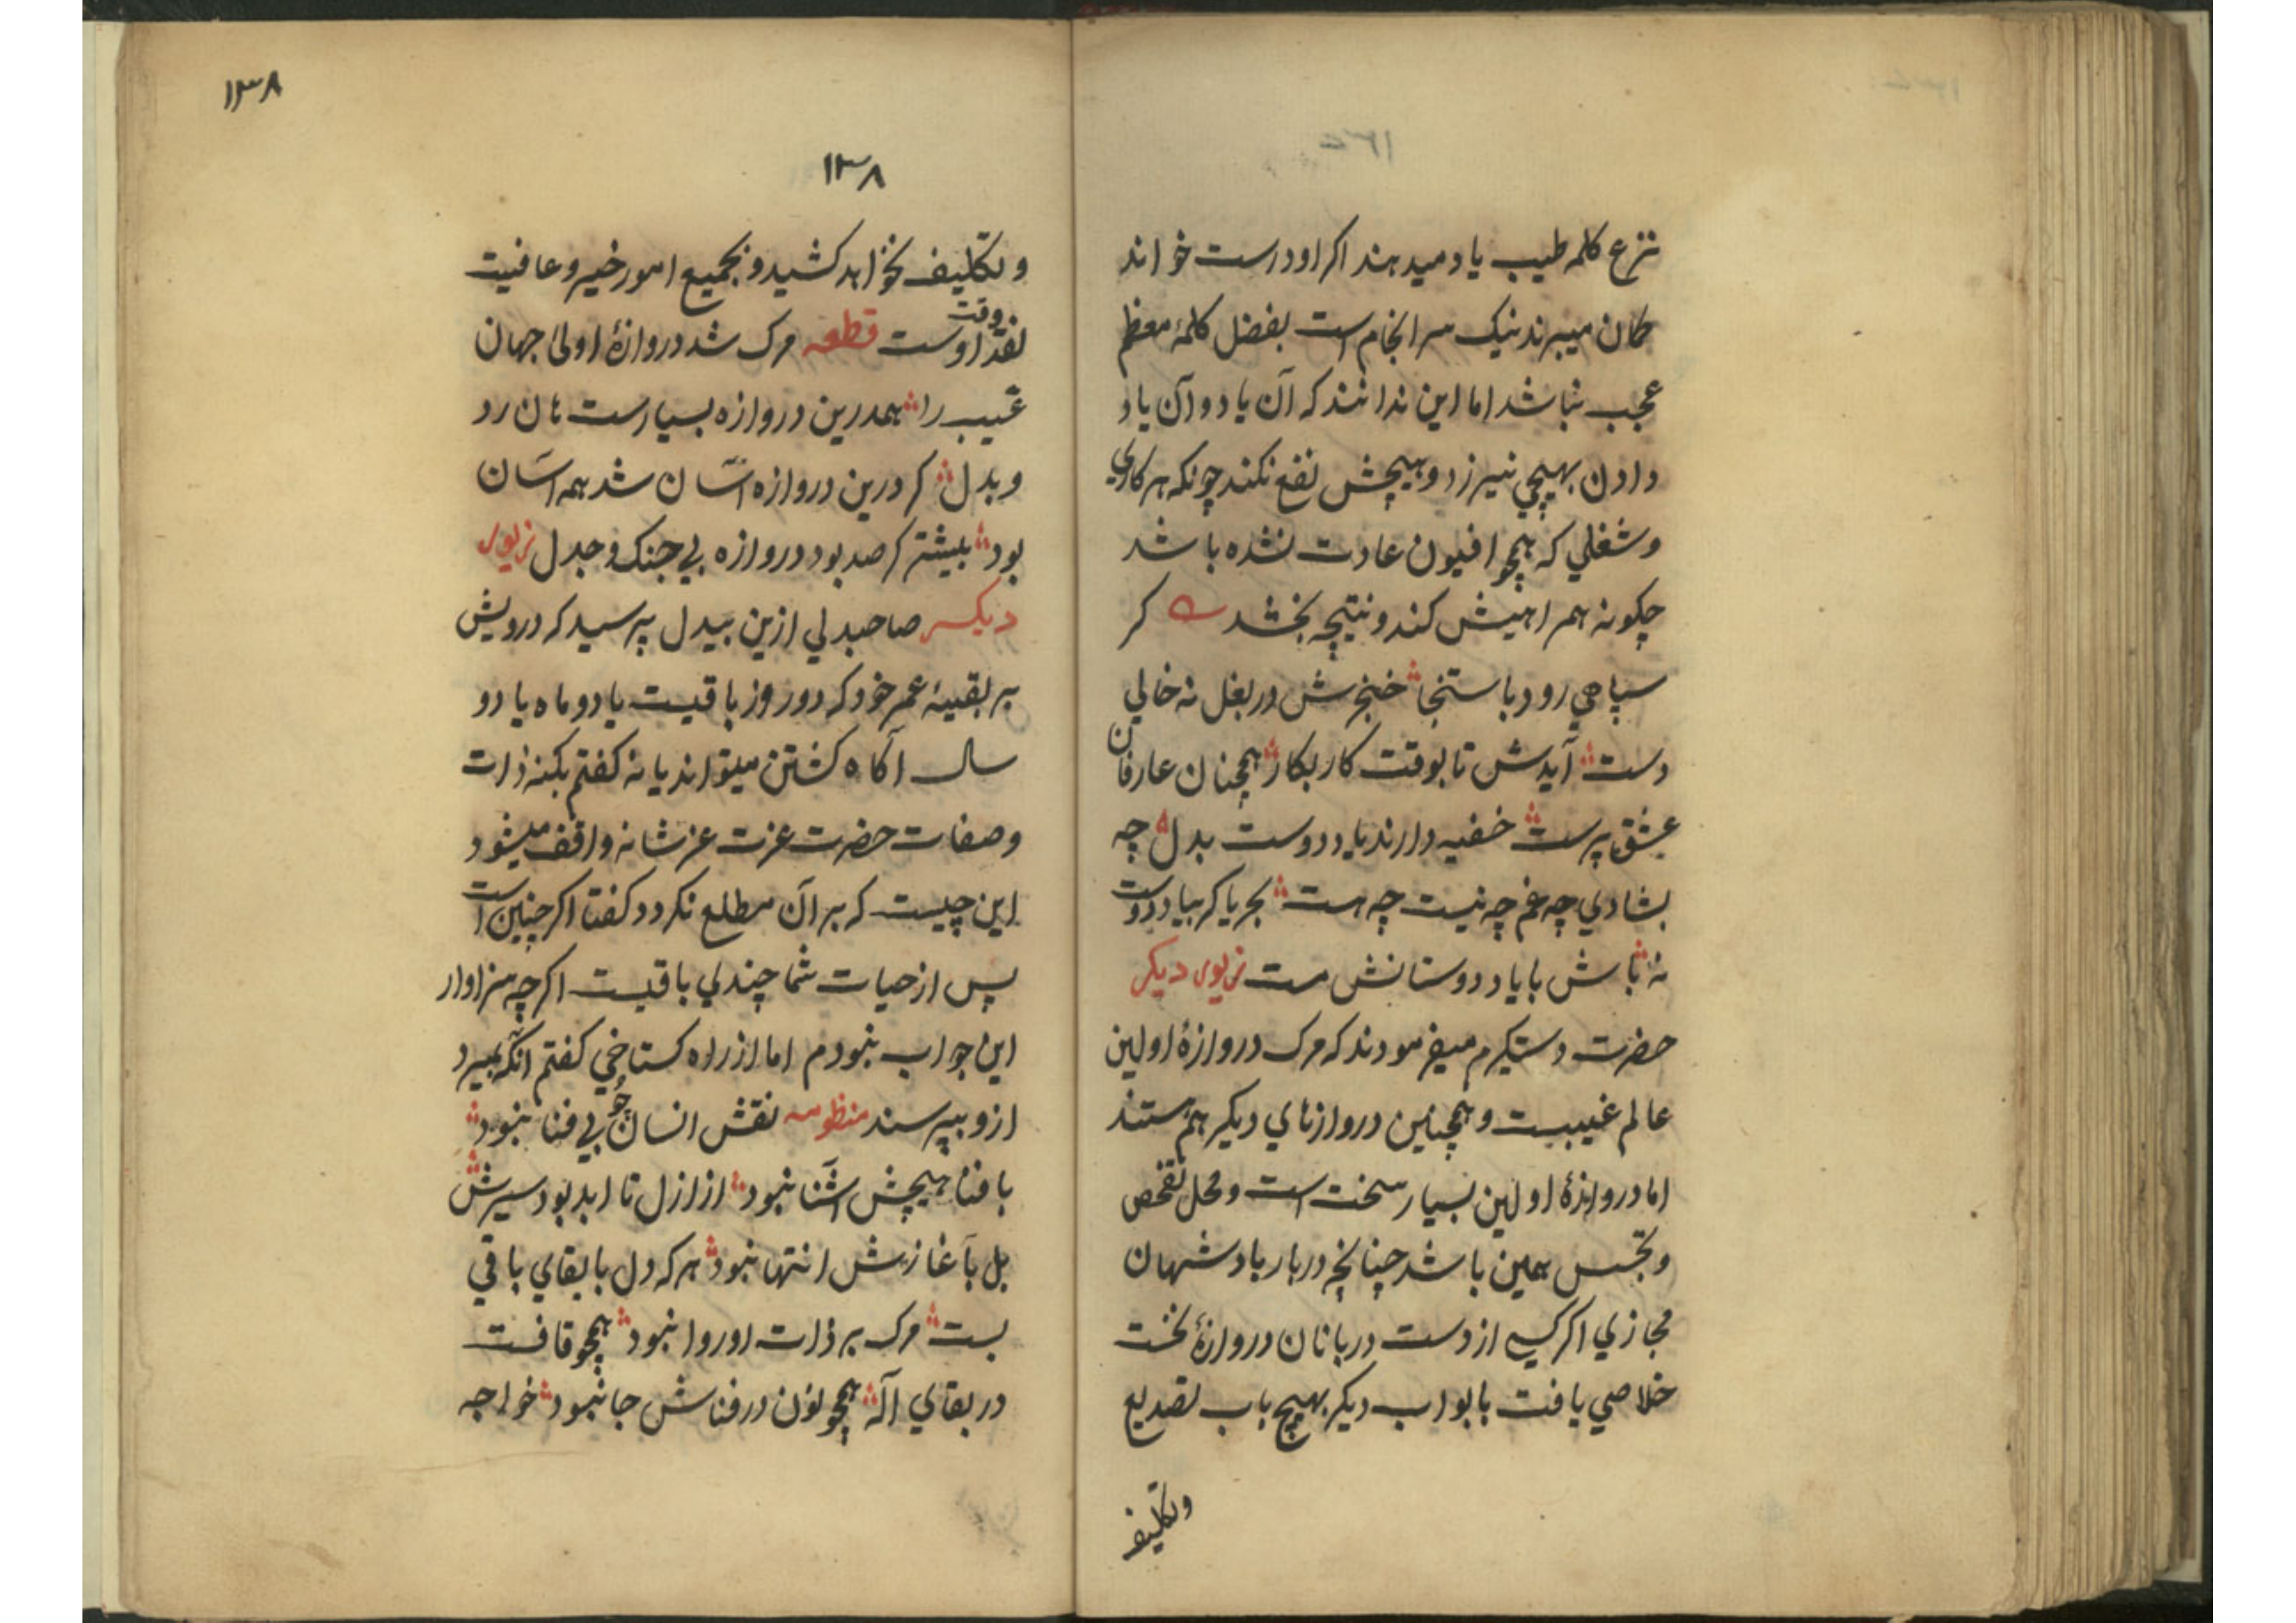 نزع کلمه طیب یاد میدهند اکر او درست خواند
کمان میبرند نیک سرانجام است بفضل کلمهٔ معظم
عجب نباشد اما این ندانند که آن یاد و آن یاد
دادن بهیچی نیرزد و هیچش نفع نکند چونکه هر کاری
و شغلی که همچو افیون عادت نشده باشد
چکونه همراهیش کند و نتیجه بخشد کر
سپاهی رود باستنجا خنجرش در بغل نه خالی
دست آیدش تا بوقت کار بکار همچنان عارفان
عشق پرست خفیه دارند یاد دوست بدل چه
بشادی چه غم چه نیست چه هست بجریا کر بیاد دوست
نهٔ باش با یاد دوستانش مست زیور دیکر
حضرت دستکیرم میفرمودند که مرک دروازهٔ اولین
عالم غیبست و همچنین دروازهای دیکر هم هستند
اما دروازهٔ اولین بسیار سخت است و محل تفحص
و تجسس همین باشد چنانچه دربار بادشهان
مجازی اکر کسی از دست دربانان دروازهٔ نخست
خلاصی یافت بابواب دیکر بهیچ باب تصدیع
وتکلیف
۱۳۸
۱۳۸
و تکلیف نخواهد کشید و بجمیع امور خیر و عافیت
نقد وقت اوست قطعه مرک شد دروازهٔ اولیٰ جهان
غیب را همدرین دروازه بسیارست هان رد
و بدل کر درین دروازه آسان شد همه آسان
بود بیشتر کر صد بود دروازه بی جنک و جدل زیور
دیکر صاحبدلی ازین بیدل پرسید که درویش
بر بقیهٔ عمر خود که دو روز باقیست یا دو ماه یا دو
سال آکاه کشتن میتواند یا نه کفتم بکنه ذات
و صفات حضرت عزت عز شانه واقف میشود
این چیست که بر آن مطلع نکردد کفتا اکر چنین است
پس از حیات شما چندی باقیست اکرچه سزاوار
این جواب نبودم اما از راه کستاخی کفتم آنکه بمیرد
ازو بپرسند منظومه نقش انسان چو بی فنا نبود
با فنا هیچش آشنا نبود از ازل تا ابد بود سیرش
بل بآغازش انتها نبود هر که دل با بقای باقی
بست مرک بر ذات او روا نبود همچو قافست
در بقای آله همچو نون در فناش جا نبود خواجه